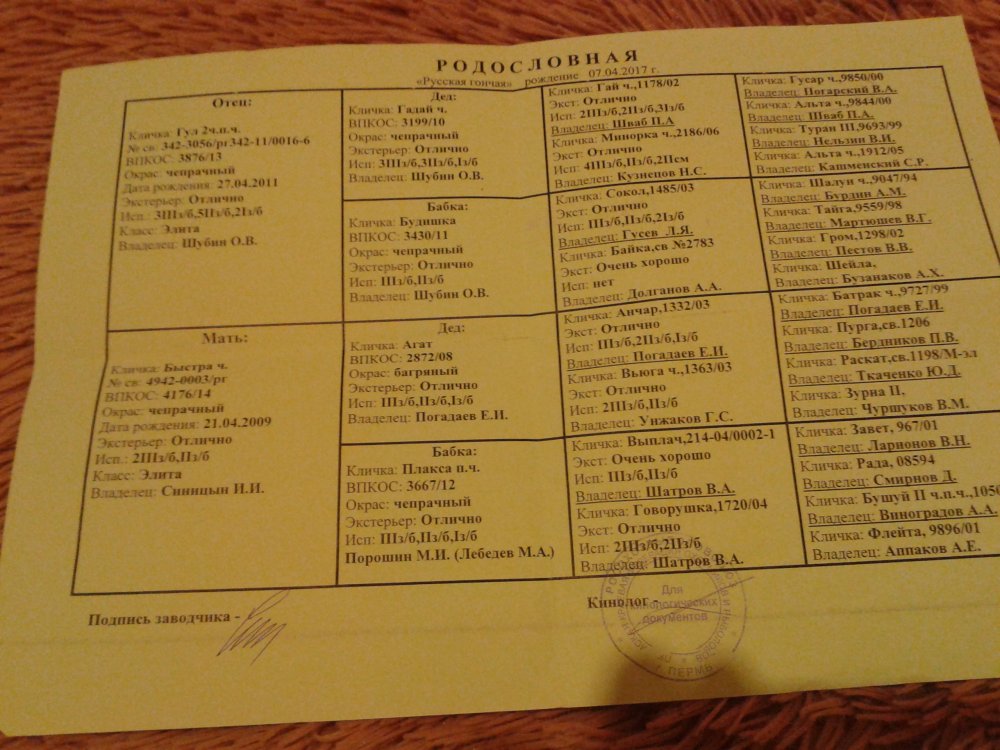 РОДОСЛОВНАЯ
«Русская гончая» рождение 07.04.2017 г.
Отец:
Кличка: Гул 2ч.п.ч.
№ св: 342-3056/рг342-11/0016-6
ВПКОС: 3876/13
Окрас: чепрачный
Дата рождения: 27.04.2011
Экстерьер: Отлично
Исп: 3IIIз/б,5IIз/б,2Iз/б
Класс: Элита
Владелец: Шубин О.В.
Мать:
Кличка: Быстра ч.
№ св: 4942-0003/рг
ВПКОС: 4176/14
Окрас: чепрачный
Дата рождения: 21.04.2009
Экстерьер: Отлично
Исп.: 2IIIз/б,IIз/б
Класс: Элита
Владелец: Синицын И.И.
Дед:
Кличка: Гадай ч.
ВПКОС: 3199/10
Окрас: чепрачный
Экстерьер: Отлично
Исп: 3IIIз/б,3IIз/б,Iз/б
Владелец: Шубин О.В.
Бабка:
Кличка: Будишка
ВПКОС: 3430/11
Окрас: чепрачный
Экстерьер: Отлично
Исп: IIIз/б,IIз/б
Владелец: Шубин О.В.
Дед:
Кличка: Агат
ВПКОС: 2872/08
Окрас: багряный
Экстерьер: Отлично
Исп: IIIз/б,IIз/б,Iз/б
Владелец: Погадаев Е.И.
Бабка:
Кличка: Плакса п.ч.
ВПКОС: 3667/12
Окрас: чепрачный
Экстерьер: Отлично
Исп: IIIз/б,IIз/б,Iз/б
Порошин М.И. (Лебедев М.А.)
Кличка: Гай ч.,1178/02
Экст: Отлично
Исп: 2IIIз/б,2IIз/б,3Iз/б
Владелец: Шваб П.А
Кличка: Минорка ч.,2186/06
Экст: Отлично
Исп: 4IIIз/б,IIз/б,2IIсм
Владелец: Кузнецов Н.С.
Кличка: Сокол,1485/03
Экст: Отлично
Исп: IIIз/б,IIз/б,2Iз/б
Владелец: Гусев Л.Я.
Кличка: Байка,св №2783
Экст: Очень хорошо
Исп: нет
Владелец: Долганов А.А.
Кличка: Анчар,1332/03
Экст: Отлично
Исп: IIIз/б,2IIз/б,Iз/б
Владелец: Погадаев Е.И.
Кличка: Вьюга ч.,1363/03
Экст: Отлично
Исп: 2IIIз/б,IIз/б
Владелец: Унжаков Г.С.
Кличка: Выплач,214-04/0002-1
Экст: Очень хорошо
Исп: IIIз/б,IIз/б
Владелец: Шатров В.А.
Кличка: Говорушка,1720/04
Экст: Отлично
Исп: 2IIIз/б,2IIз/б
Владелец: Шатров В.А.
Кличка: Гусар ч.,9850/00
Владелец: Погарский В.А.
Кличка: Альта ч.,9844/00
Владелец: Шваб П.А.
Кличка: Туран III,9693/99
Владелец: Нельзин В.И.
Кличка: Альта ч.,1912/05
Владелец: Кашменский С.Р.
Кличка: Шалун ч.,9047/94
Владелец: Бурдин А.М.
Кличка: Тайга,9559/98
Владелец: Мартюшев В.Г.
Кличка: Гром,1298/02
Владелец: Пестов В.В.
Кличка: Шейла,
Владелец: Бузанаков А.Х.
Кличка: Батрак ч.,9727/99
Владелец: Погадаев Е.И.
Кличка: Пурга,св.1206
Владелец: Бердников П.В.
Кличка: Раскат,св.1198/М-эл
Владелец: Ткаченко Ю.Д.
Кличка: Зурна II,
Владелец: Чуршуков В.М.
Кличка: Завет, 967/01
Владелец: Ларионов В.Н.
Кличка: Рада, 08594
Владелец: Смирнов Д.
Кличка: Бушуй II ч.п.ч.,1050
Владелец: Виноградов А.А.
Кличка: Флейта, 9896/01
Владелец: Аппаков А.Е.
Подпись заводчика -
Кинолог -
Для
кинологических
документов
г. ПЕРМЬ